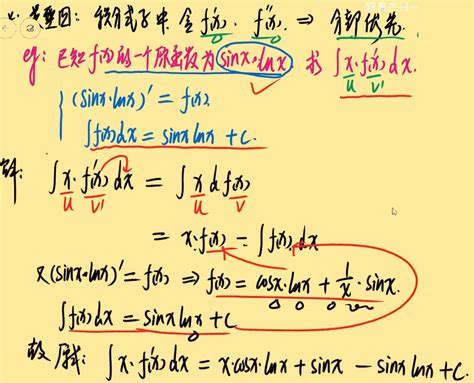 类型四: 积分式子中含 f'(x), f''(x). ⇒ 分部优先.
eg: 已知 f(x) 的一个原函数为 sinx·lnx 求 ∫x·f'(x)dx.
u v'
(sinx·lnx)' = f(x)
∫f(x)dx = sinxlnx + C.
解: ∫x·f'(x)dx = ∫x d f(x)
u v' u v
= x·f(x) - ∫f(x)dx
又(sinx·lnx)' = f(x) ⇒ f(x) = cosx·lnx + 1/x·sinx.
∫f(x)dx = sinxlnx + C
故 原式: ∫x·f'(x)dx = x·cosx·lnx + sinx - sinxlnx + C.